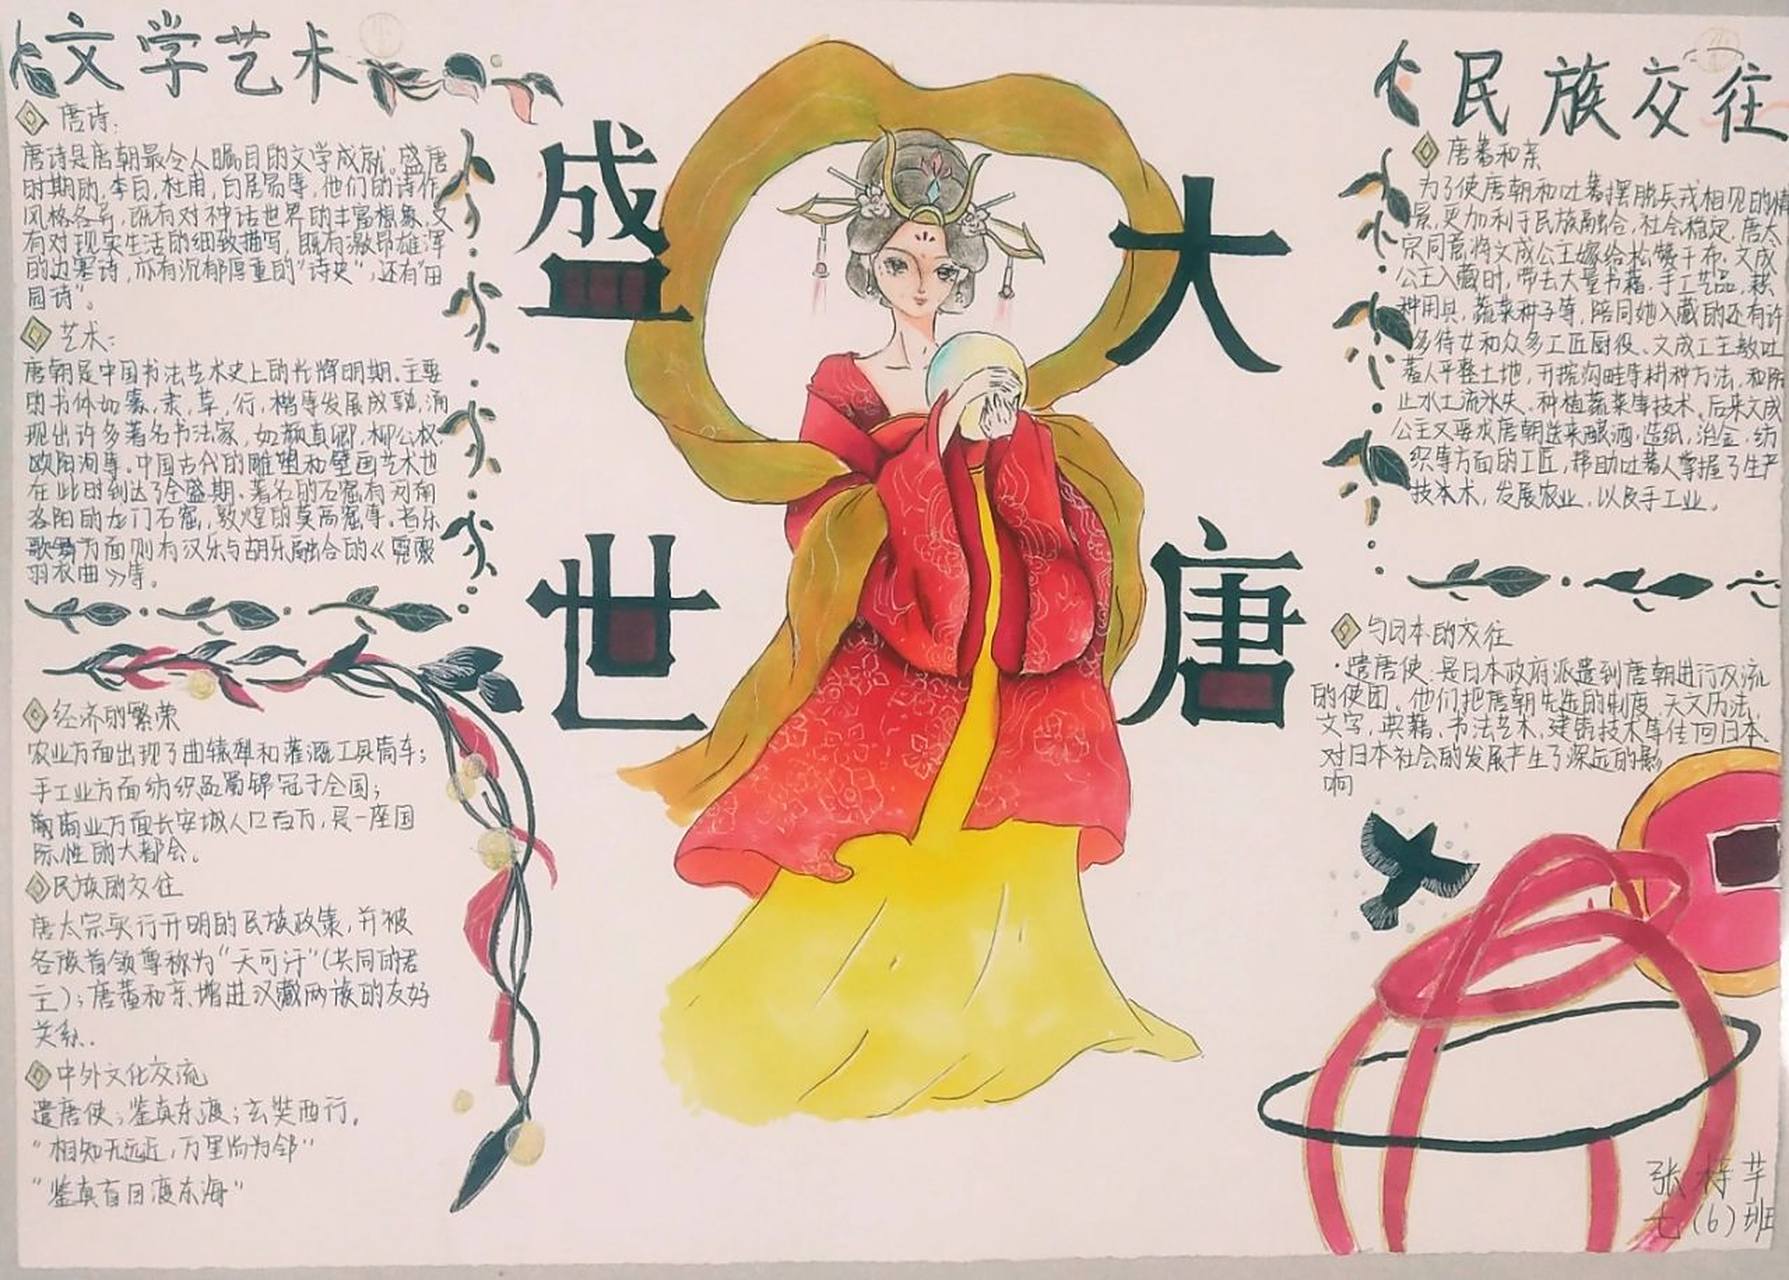 文学艺术
唐诗:
唐诗是唐朝最令人瞩目的文学成就。盛唐
时期的,李白,杜甫,白居易等,他们的诗作
风格各异,既有对神话世界的丰富想象,又
有对现实生活的细致描写,既有激昂雄浑
的边塞诗,亦有沉郁厚重的“诗史”,还有“田
园诗”。
艺术:
唐朝是中国书法艺术史上的光辉明期.主要
的书体如篆,隶,草,行,楷等发展成熟,涌
现出许多著名书法家,如颜真卿,柳公权,
欧阳询等.中国古代的雕塑和壁画艺术也
在此时到达了全盛期.著名的石窟有河南
洛阳的龙门石窟,敦煌的莫高窟等.音乐
歌舞方面则有汉乐与胡乐融合的《霓裳
羽衣曲》等。
经济的繁荣
农业方面出现了曲辕犁和灌溉工具筒车;
手工业方面纺织品蜀锦冠于全国;
商业方面长安城人口百万,是一座国
际性的大都会。
民族的交往
唐太宗实行开明的民族政策,并被
各族首领尊称为“天可汗”(共同的君
主);唐蕃和亲,增进汉藏两族的友好
关系.
中外文化交流
遣唐使;鉴真东渡;玄奘西行.
“相知无远近,万里尚为邻”
“鉴真盲目渡东海”
盛
世
大
唐
民族交往
唐蕃和亲
为了使唐朝和吐蕃摆脱兵戎相见的情
景,更加利于民族融合,社会稳定.唐太
宗同意将文成公主嫁给松赞干布.文成
公主入藏时,带去大量书籍.手工艺品,耕
种用具,蔬菜种子等,陪同她入藏的还有许
多侍女和众多工匠厨役、文成公主教吐
蕃人平整土地,开挖沟畦等耕种方法,和防
止水土流水失、种植蔬菜等技术.后来文成
公主又要求唐朝送来酿酒.造纸,冶金,纺
织等方面的工匠,帮助吐蕃人掌握了生产
技术,发展农业,以及手工业。
与日本的交往
·遣唐使.是日本政府派遣到唐朝进行交流
的使团.他们把唐朝先进的制度.天文历法,
文字,典籍、书法艺术,建铸技术等传回日本.
对日本社会的发展产生了深远的影
响
张梓芊
七(6)班